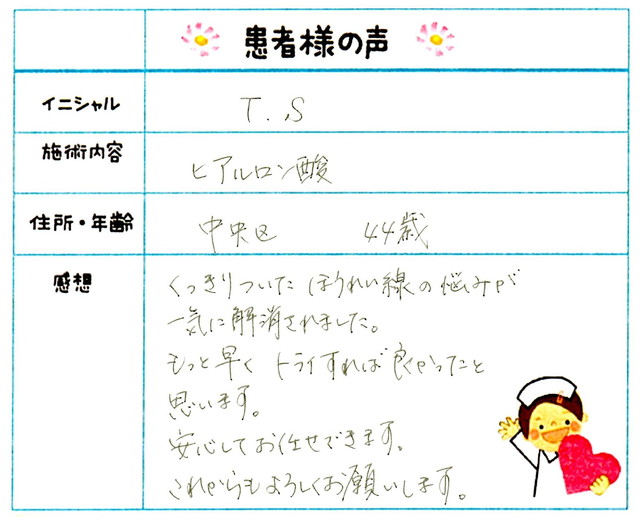 患者様の声
イニシャル T.S
施術内容 ヒアルロン酸
住所・年齢 中央区 44歳
感想 くっきりついた ほうれい線の悩みが
一気に解消されました。
もっと早く トライすれば良かったと
思います。
安心してお任せできます。
これからもよろしくお願いします。